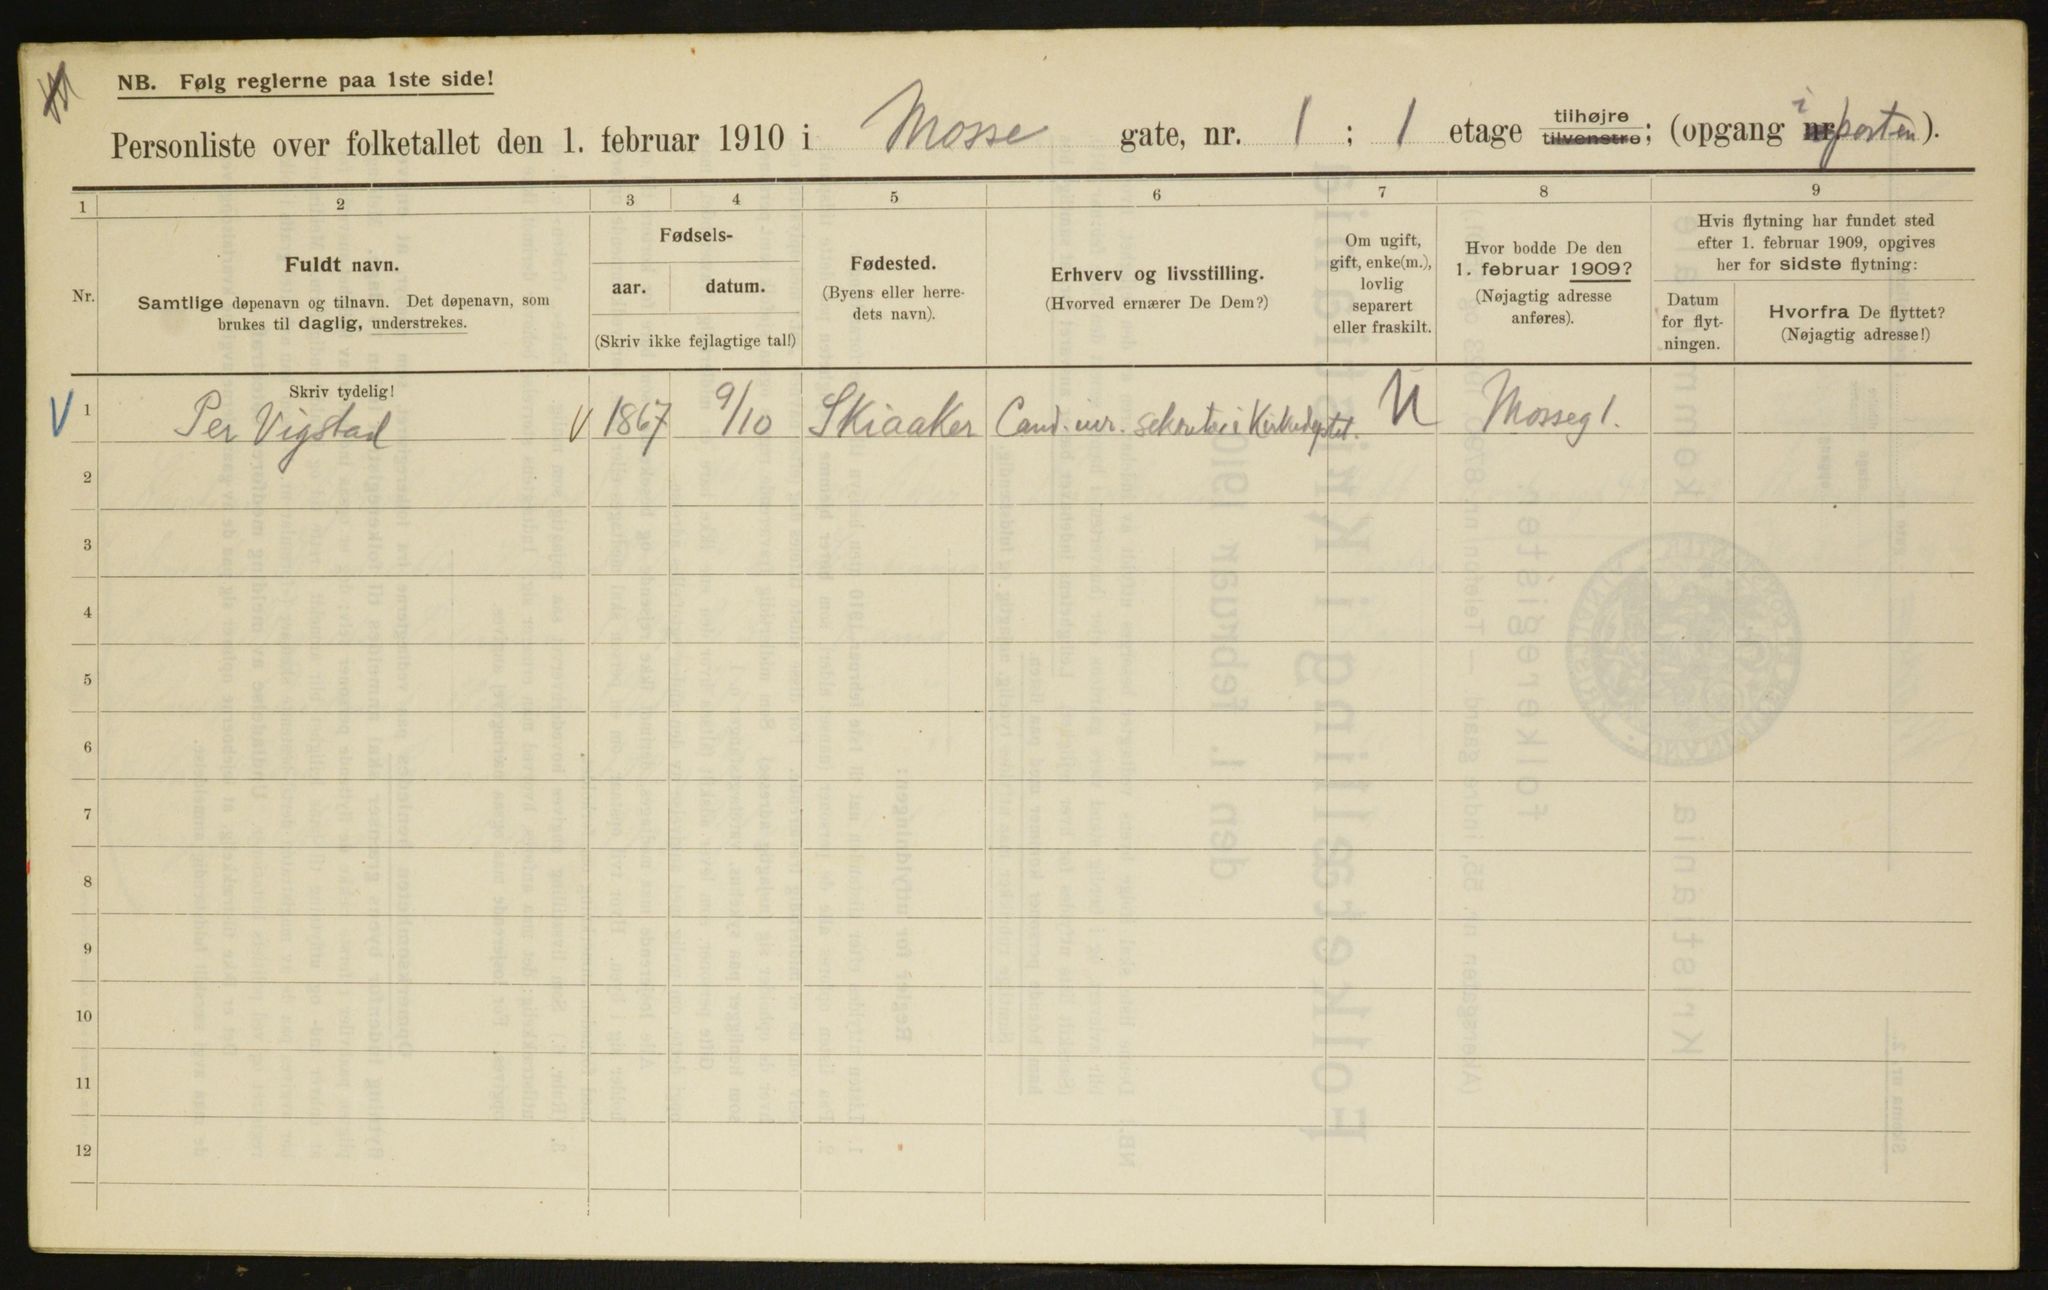 NB. Følg reglerne paa 1ste side!
Personliste over folketallet den 1. februar 1910 i Mosse gate, nr. 1 ; 1 etage tilhøjre tilvenstre; (opgang i porten).
1 2 3 4 5 6 7 8 9
Nr.
Fuldt navn.
Samtlige døpenavn og tilnavn. Det døpenavn, som
brukes til daglig, understrekes.
Fødsels-
aar. datum.
(Skriv ikke fejlagtige tal!)
Fødested.
(Byens eller herre-
dets navn).
Erhverv og livsstilling.
(Hvorved ernærer De Dem?)
Om ugift,
gift, enke(m.),
lovlig
separert
eller fraskilt.
Hvor bodde De den
1. februar 1909?
(Nøjagtig adresse
anføres).
Hvis flytning har fundet sted
efter 1. februar 1909, opgives
her for sidste flytning:
Datum
for flyt-
ningen.
Hvorfra De flyttet?
(Nøjagtig adresse!)
Skriv tydelig!
V 1 Per Vigstad V 1867 9/10 Skiaaker Cand. jur. sekretær i Kirkedeptet. U Mosseg 1.
2
3
4
5
6
7
8
9
10
11
12